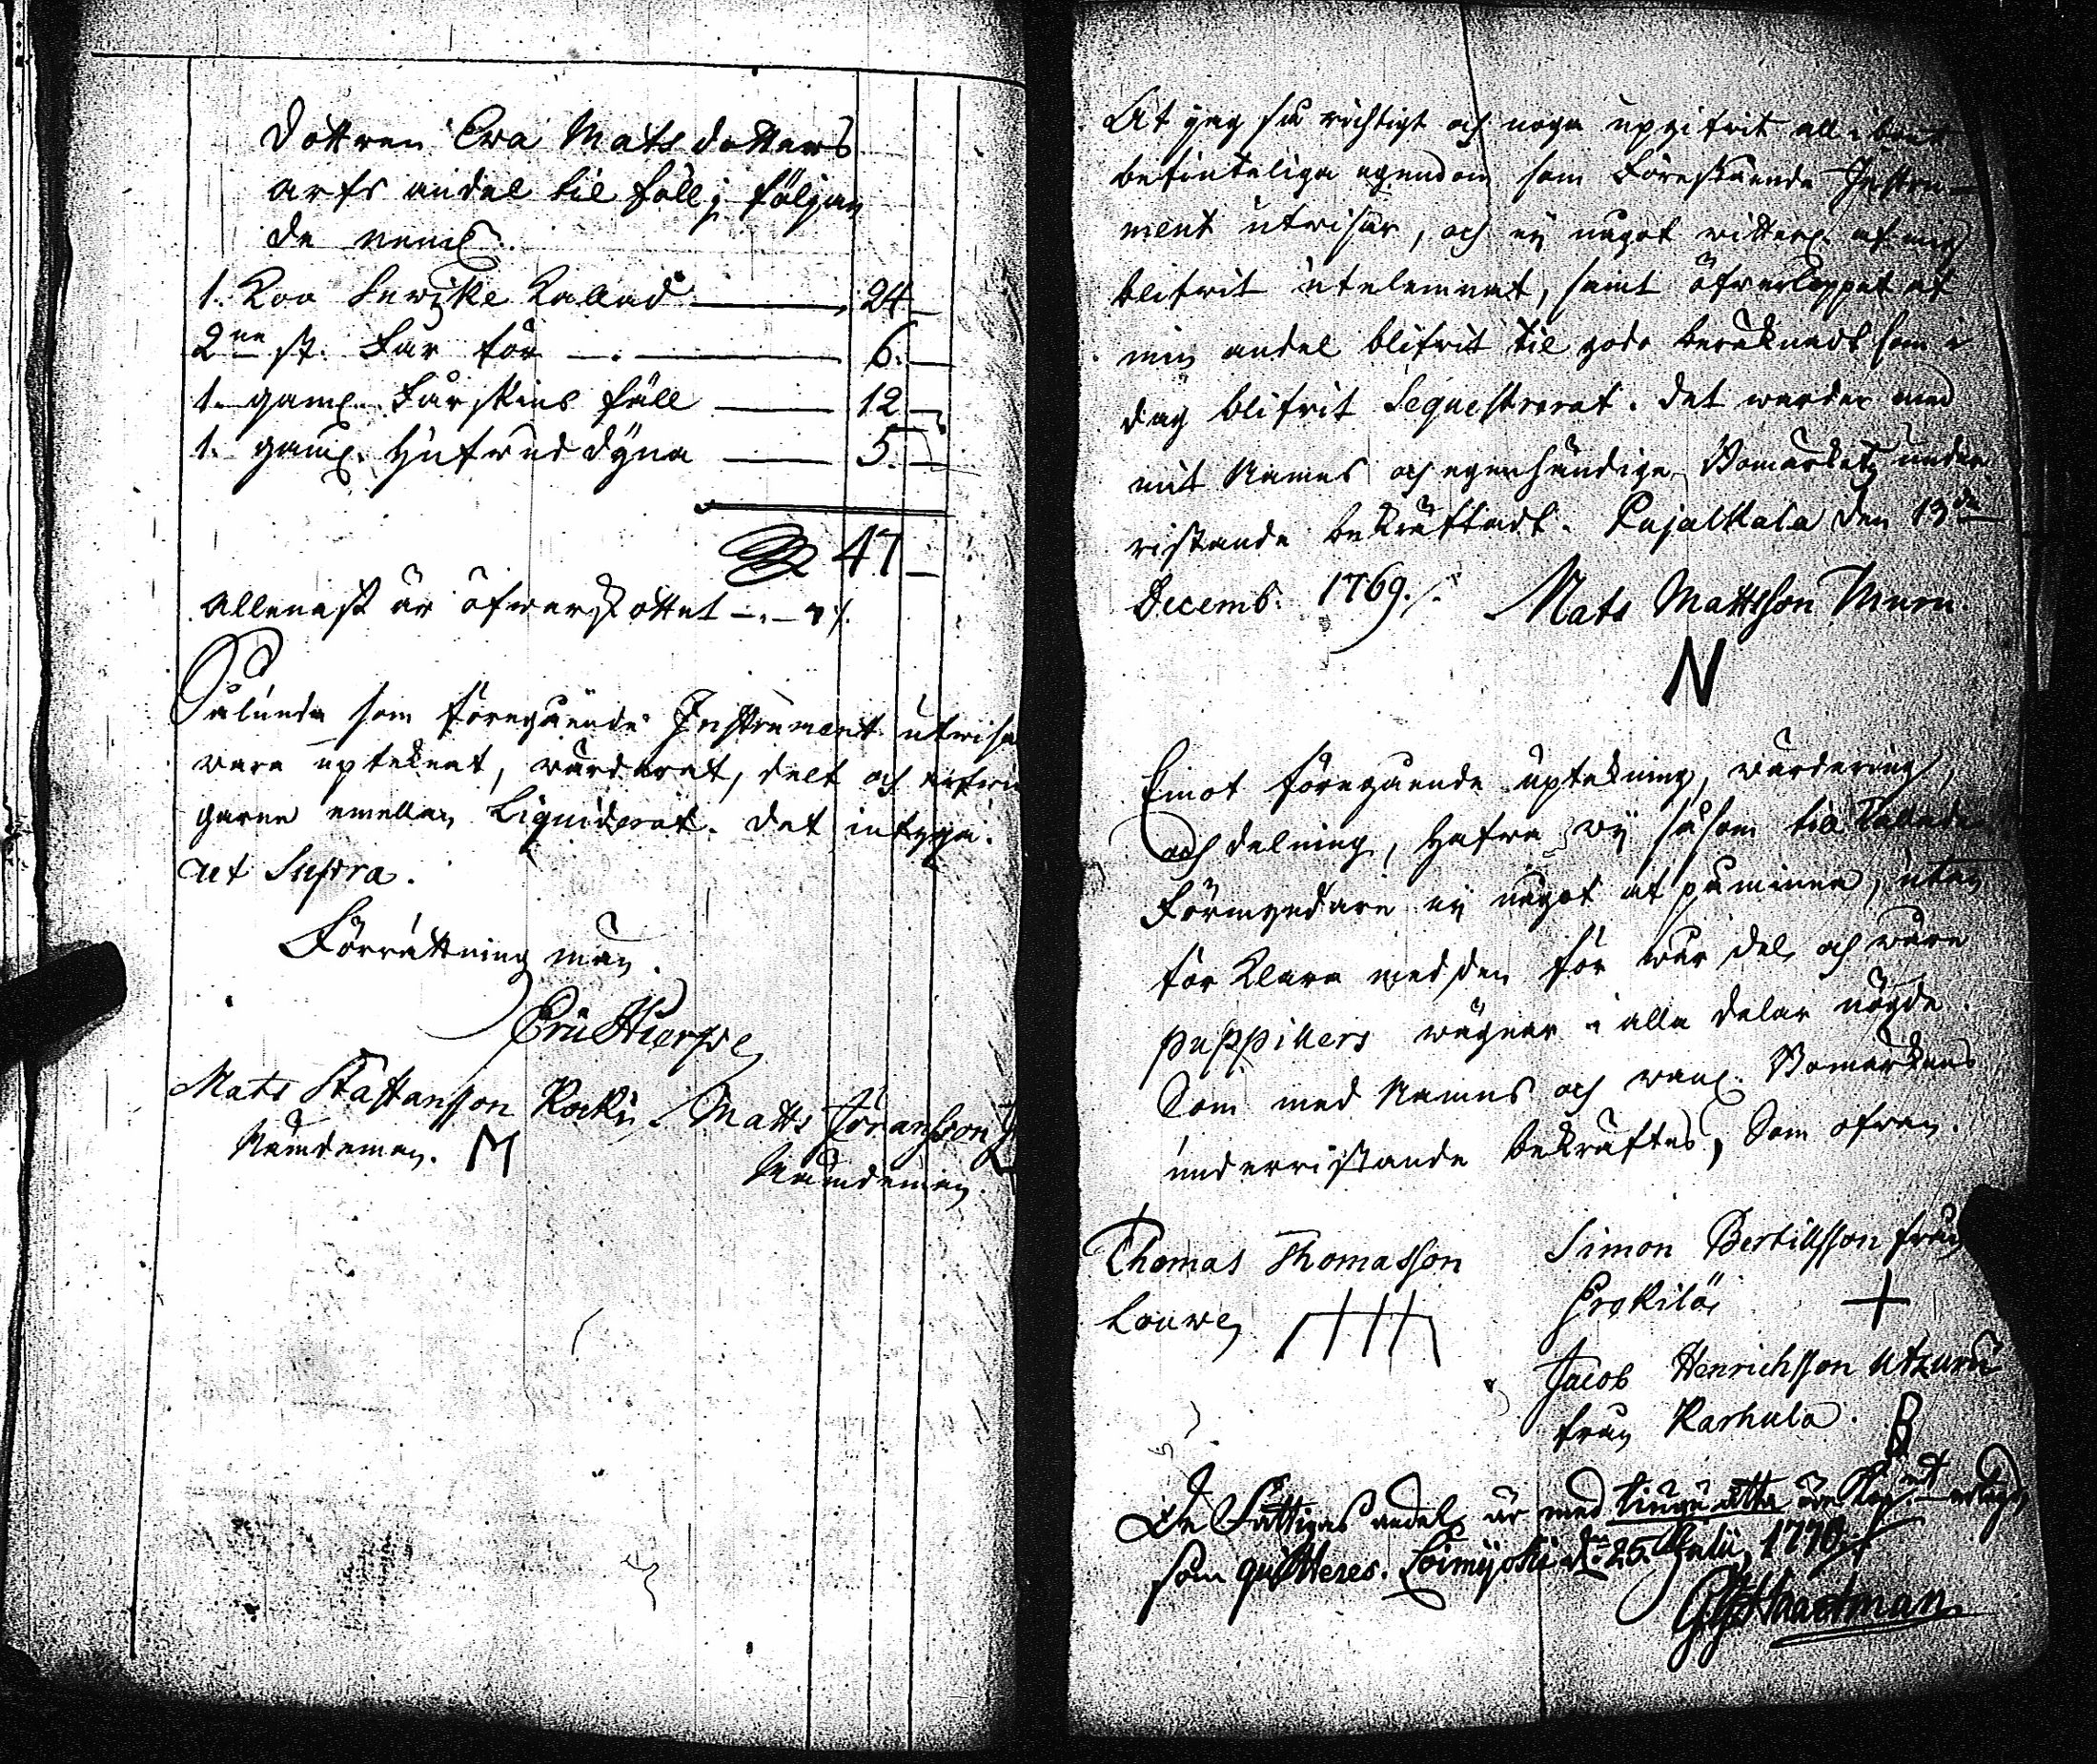 Dottren Eva Mats dotters
arfs andel til föllj följan
de neml.
1. Koo Lewike kallad — 24 —
2ne st. Får för — 6. —
1. gaml. Fårskins fäll — 12 —
1. gaml. Hufwud dyna — 5. —
47 —
Allenast är öfwerskottet
Sålunda som föregående Instrument utwisar
wara uptecknat, wärderat, delt och
garne emellan Liquiderat. Det intygar.
ut Supra.
Förrättning man.
Mats Staffansson Kocki. Matts Jöransson
Nämdeman. M Nämdeman
At jag så richtigt och noga upgifwit all i boet
befinteliga egendom som Föreskående Instru-
ment utwisar, och ej något witterl. af mig
blifwit utelemnat, samt öfwerloppet af
min andel blifwit til godo beräknadt som i
dag blifwit Sequestrerat. Det warder med
mit Namns och egenhändige Bomärkets under
ristande bekräftadt. Pajalkala den 13de
Decemb. 1769. Mats Mattsson Muru.
N
Emot föregående uptekning, wärdering,
och delning, Hafwa wij såsom till kallade
Förmyndare ej något at påminna, utan
förklara med den för wår del och wåra
puppillers wägnar i alla delar nögde.
Som med Namns och wanl. Bomärkens
underristande bekräftes, Som ofwan.
Thomas Thomasson Simon Bertillsson från
Louwe,
Jacob Henrichsson
från Karhula. B
De Fattigas andel är med tiugu åtta öre Kopp.mt erlagd,
som quitteres. Loimijoki d. 25. Julii, 1770.
Haartman